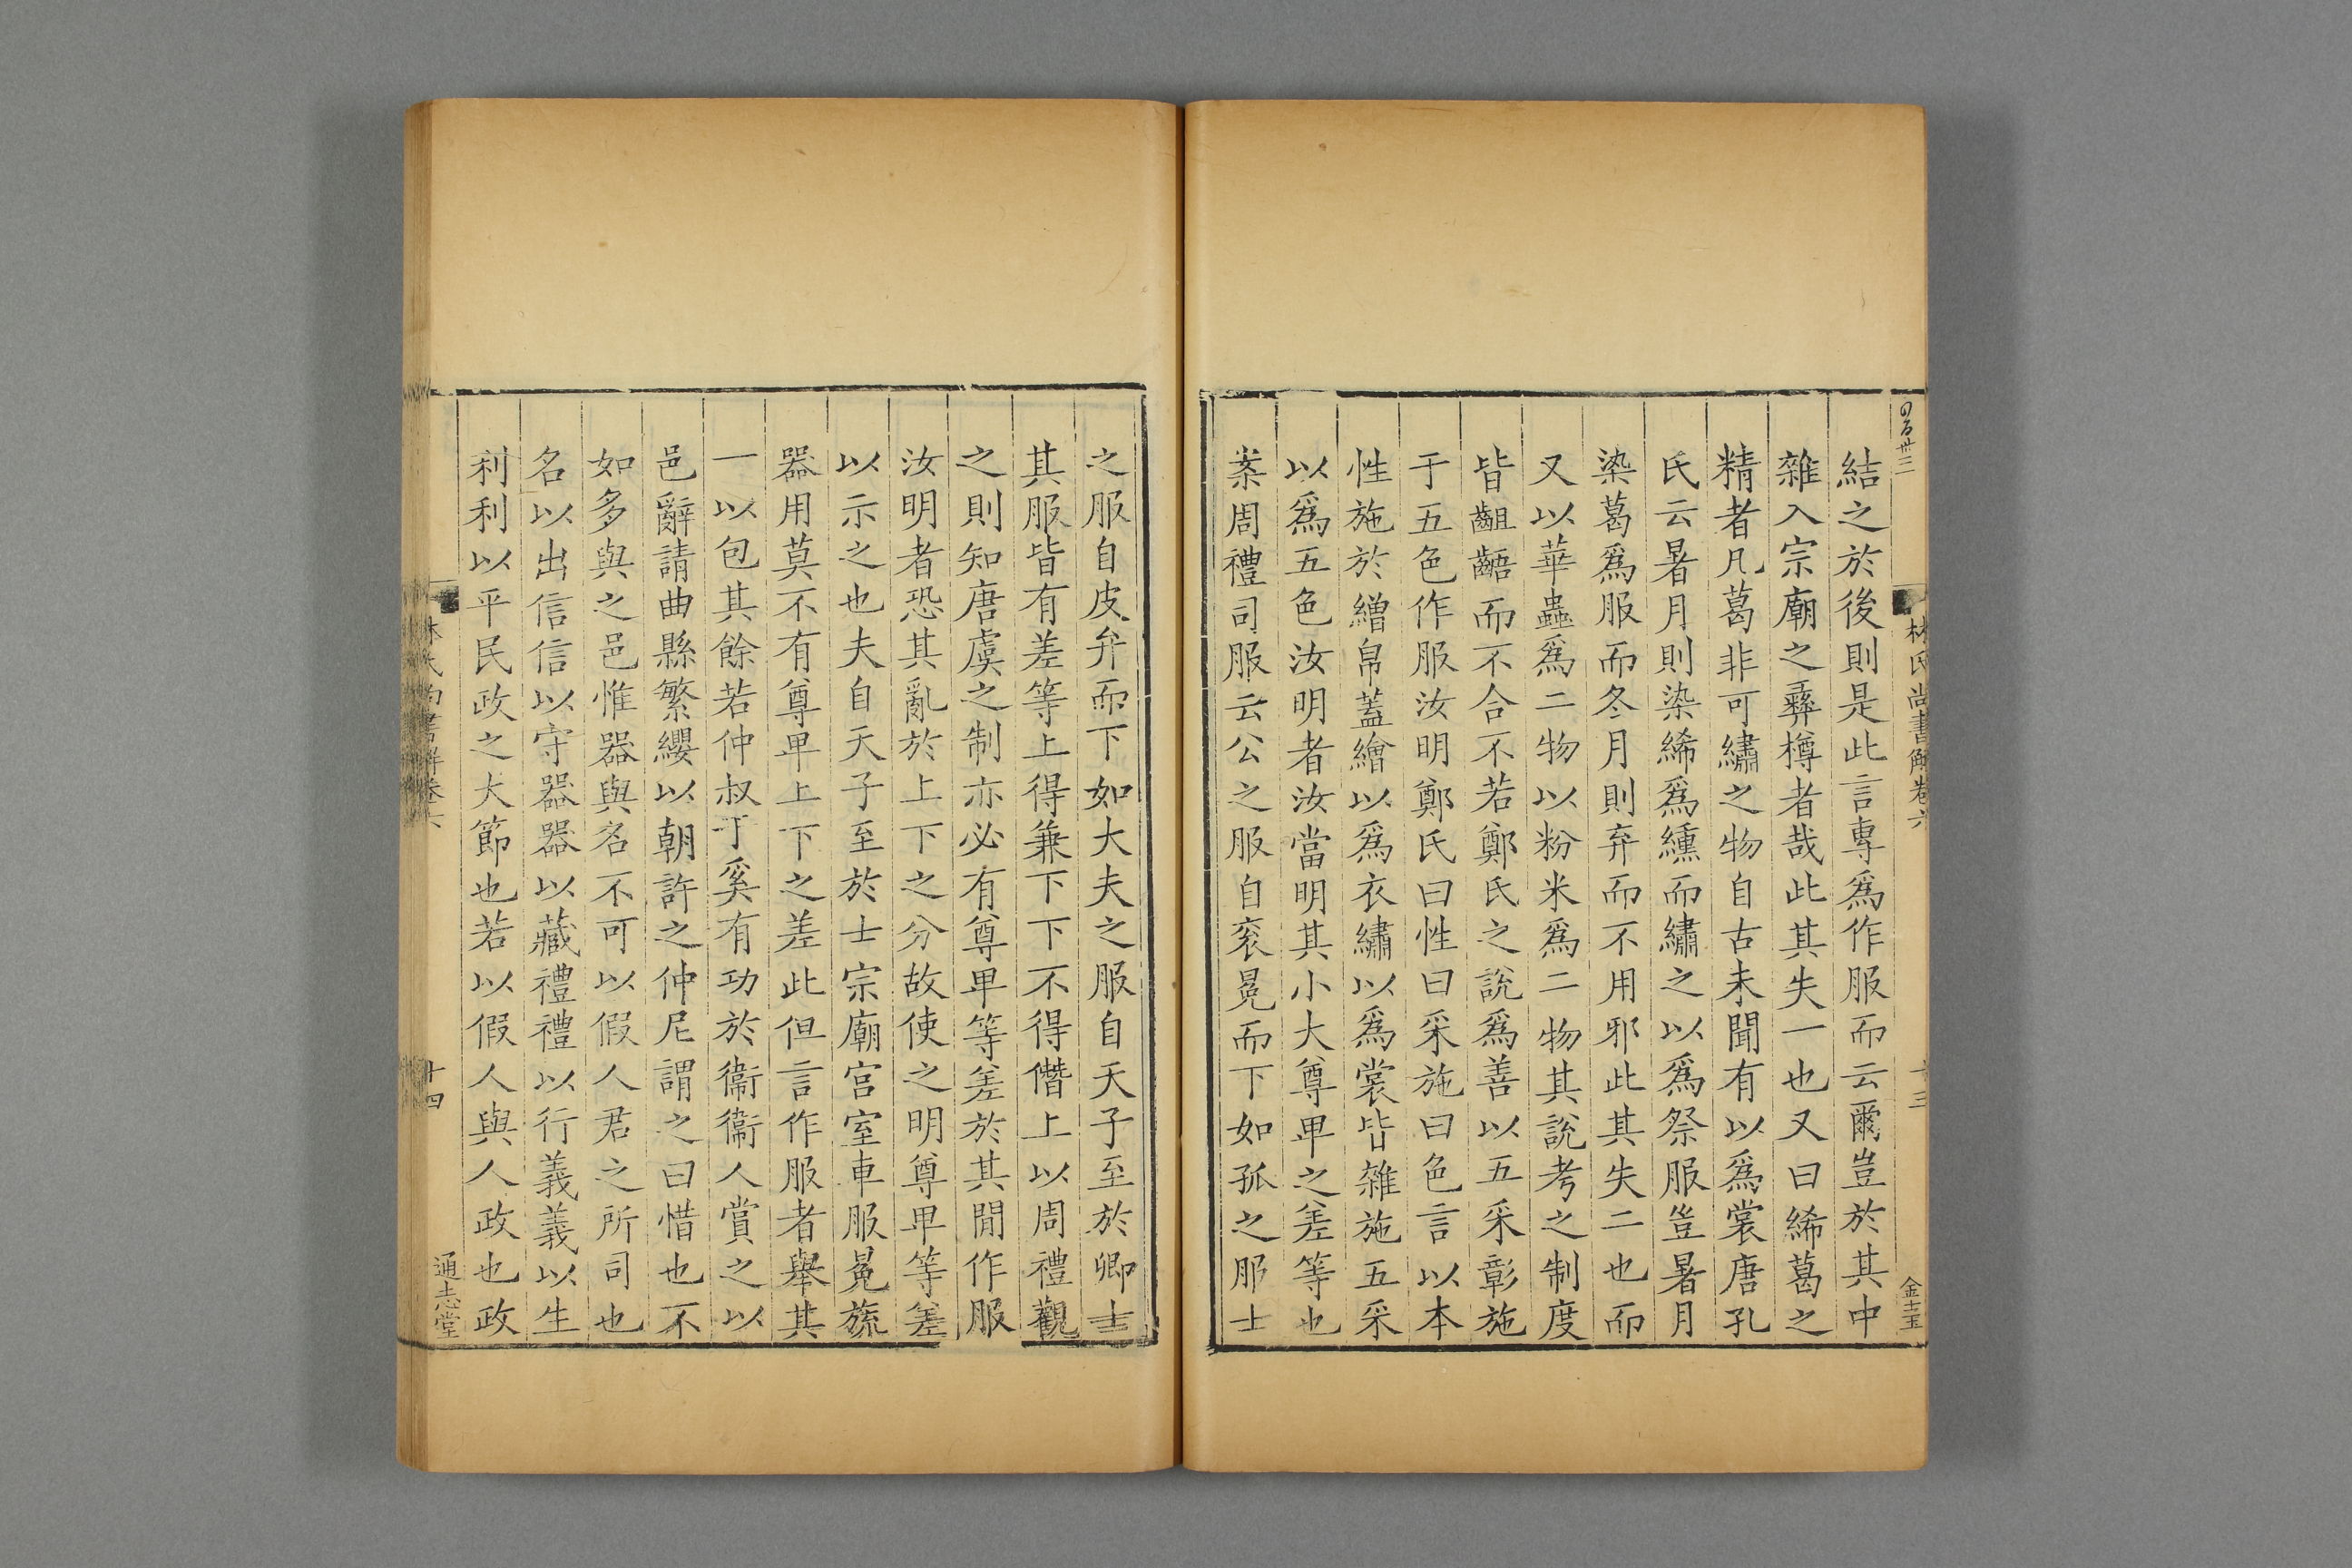 林氏尚書解卷六
十三
金士玉
結之於後則是此言專爲作服而云爾豈於其中
雜入宗廟之彞樽者哉此其失一也又曰絺葛之
精者凡葛非可繡之物自古未聞有以爲裳唐孔
氏云暑月則染絺爲纁而繡之以爲祭服豈暑月
染葛爲服而冬月則弃而不用邪此其失二也而
又以華蟲爲二物以粉米爲二物其說考之制度
皆齟齬而不合不若鄭氏之說爲善以五采彰施
于五色作服汝明鄭氏曰性曰采施曰色言以本
性施於繒帛蓋繪以爲衣繡以爲裳皆雜施五采
以爲五色汝明者汝當明其小大尊卑之差等也
案周禮司服云公之服自衮冕而下如孤之服士
之服自皮弁而下如大夫之服自天子至於卿士
其服皆有差等上得兼下下不得僭上以周禮觀
之則知唐虞之制亦必有尊卑等差於其閒作服
汝明者恐其亂於上下之分故使之明尊卑等差
以示之也夫自天子至於士宗廟宫室車服冕旒
器用莫不有尊卑上下之差此但言作服者舉其
一以包其餘若仲叔于奚有功於衞衞人賞之以
邑辭請曲縣繁纓以朝許之仲尼謂之曰惜也不
如多與之邑惟器與名不可以假人君之所司也
名以出信信以守器器以藏禮禮以行義義以生
利利以平民政之大節也若以假人與人政也政
林氏尚書解卷六
十四
通志堂